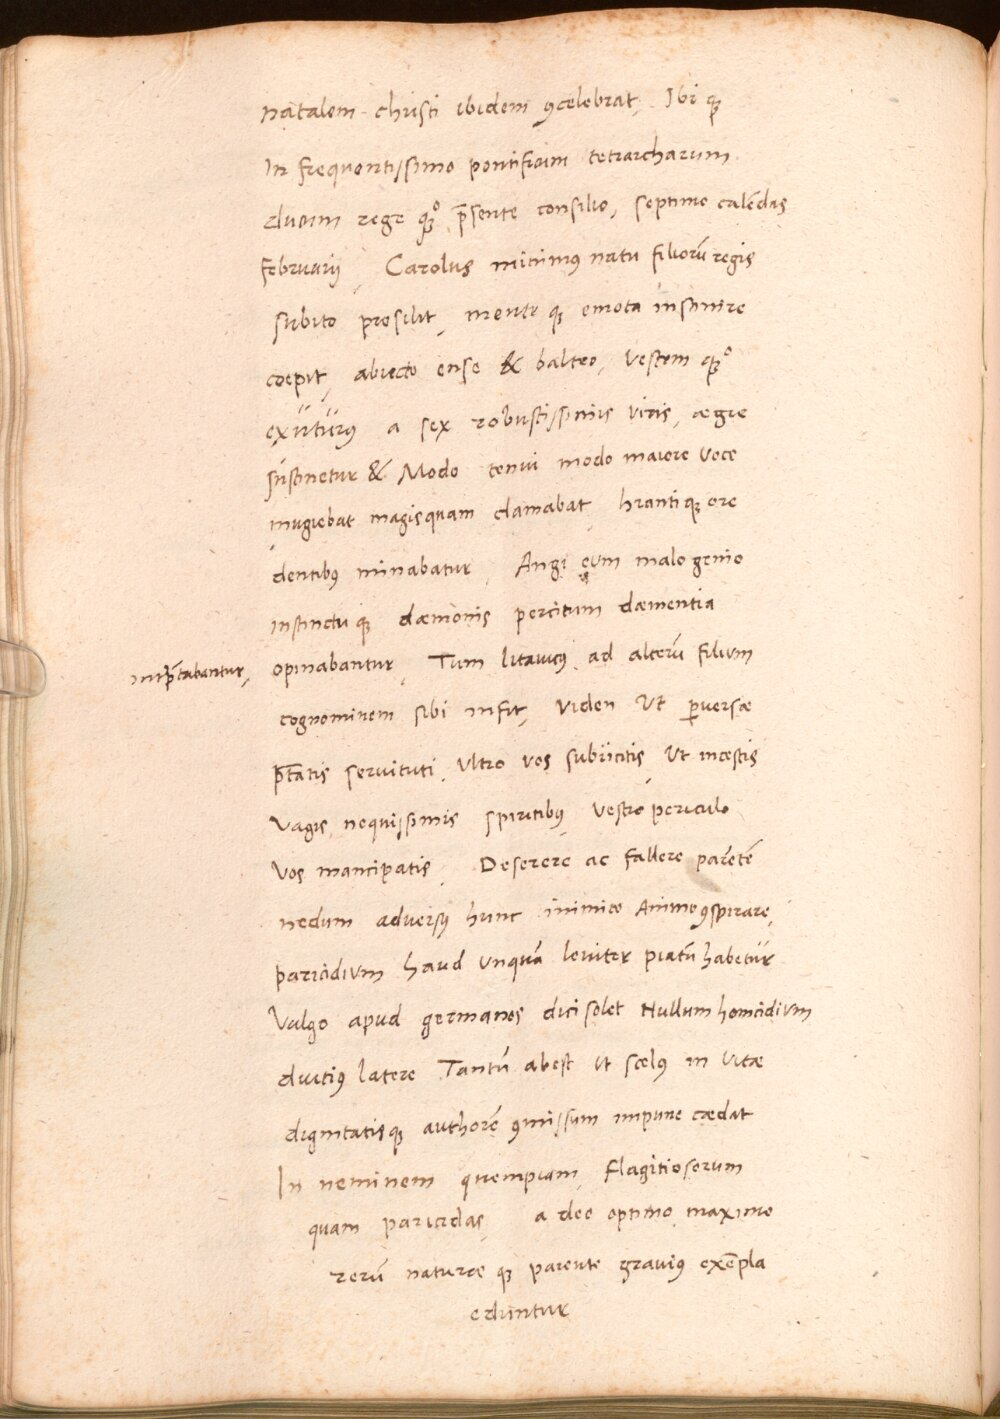 natalem christi ibidem ꝯcelebrat, Ibi qꝫ
In frequentissimo pontificum tetrarcharum
ducum rege qꝫ p̄sente consilio, septimo calēdas
februarij, Carolus minimꝰ natu filiorū regis
subito prosilit, mente qꝫ emota insanire
coepit, abiecto ense & balteo, Vestem qꝫ
exuturꝰ a sex robustissimis viris, ægre
sustinetur & Modo tenui modo maiore voce
mugiebat magisquam clamabat, hiantiqꝫ ore
dentibꝰ minabatur, Angi eum malo genio
instinctu qꝫ dæmonis percitum dæmentia
opinabantur, Tum litauicꝰ ad alterū filium
intp̄tabantur,
cognominem sibi infit, Viden Ut ꝑuersæ
p̄tatis seruituti, Ultro vos subiicitis, Ut incestis
Vagis, nequissimis spiritibꝰ, Vestro periculo
Vos mancipatis, Deserere ac fallere parētē
nedum aduersꝰ hunc inimico Animo ꝯspirare,
paricidium haud unquā leuiter piatū habetur
Vulgo apud germanos dici solet Nullum homicidium
diutiꝰ latere Tantū abest ut scelꝰ in Vitæ
dignitatisqꝫ authorē ꝯmissum impune cædat
In neminem quempiam flagitiosorum
quam paricidas, a deo optimo maximo
rerū naturæ qꝫ parente grauiꝰ exēpla
eduntur